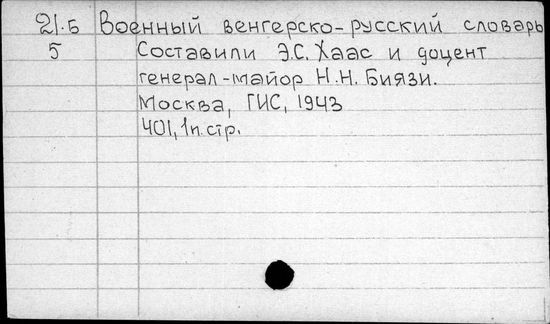 21.5 Военный венгерско-русский словарь
5 Составили Э.С. Хаас и доцент
генерал-майор Н.Н. Биязи.
Москва, ГИС, 1943
401, 1п. стр.